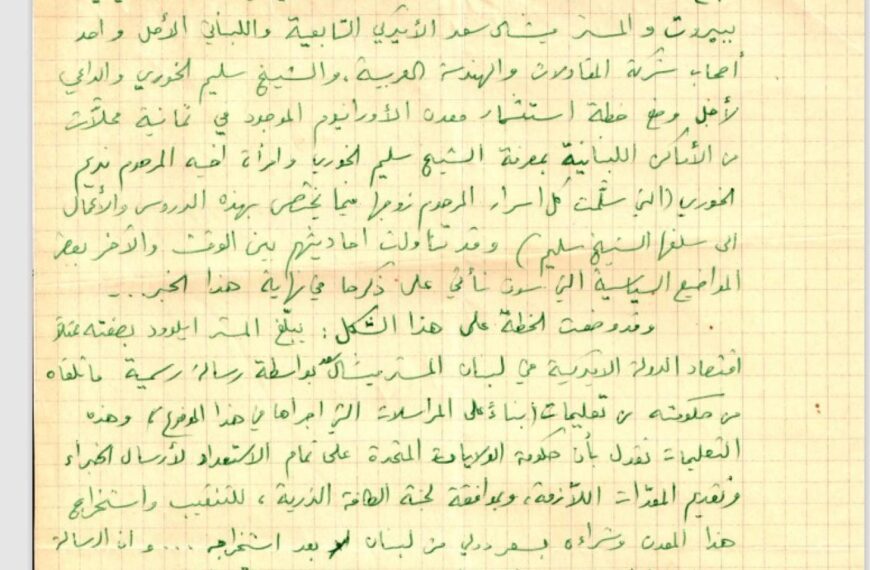 ببيروت والمستر ميشال سعد الأميركي التابعية واللبناني الأصل واحد
أصحاب شركة المقاولات والهندسة العربية، والشيخ سليم الخوري والداعي
لأجل وضع خطة استثمار معدن الأورانيوم الموجود في ثمانية محلات
من الأماكن اللبنانية بمعرفة الشيخ سليم الخوري وامرأة اخيه المرحوم نديم
الخوري (التي سلّمت كل اسرار المرحوم زوجها فيما يختص بهذه الدروس والأعمال
الى سلفها الشيخ سليم) وقد تناولت احاديثهم بين الوقت والآخر بعض
المواضيع السياسية التي سوف نأتي على ذكرها في نهاية هذا الخبر...
وقد وضعت الخطة على هذا الشكل: يبلّغ المستر ايلوود بصفته ممثلا
اقتصاد الدولة الاميركية في لبنان المستر ميشال سعد بواسطة رسالة رسمية ما تلقاه
من حكومته من تعليمات (بناءً على المراسلات التي اجراها في هذا الموضوع)، وهذه
التعليمات تقول بأن حكومة الولايات المتحدة على تمام الاستعداد لأرسال الخبراء
وتقديم المعدّات اللازمة، وبموافقة لجنة الطاقة الذرية، للتنقيب واستخراج
هذا المعدن وشراءه بسعر دولي من لبنان بعد استخراجه... وان الرسالة